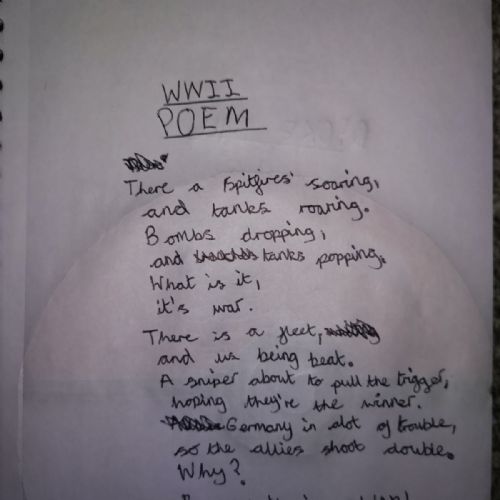 WWII
POEM
There a spitfires' soaring,
and tanks roaring.
Bombs dropping,
and tanks popping.
What is it,
it's war.
There is a fleet,
and us being beat.
A sniper about to pull the trigger,
hoping they're the winner.
Germany in alot of trouble,
so the allies shoot double.
Why?